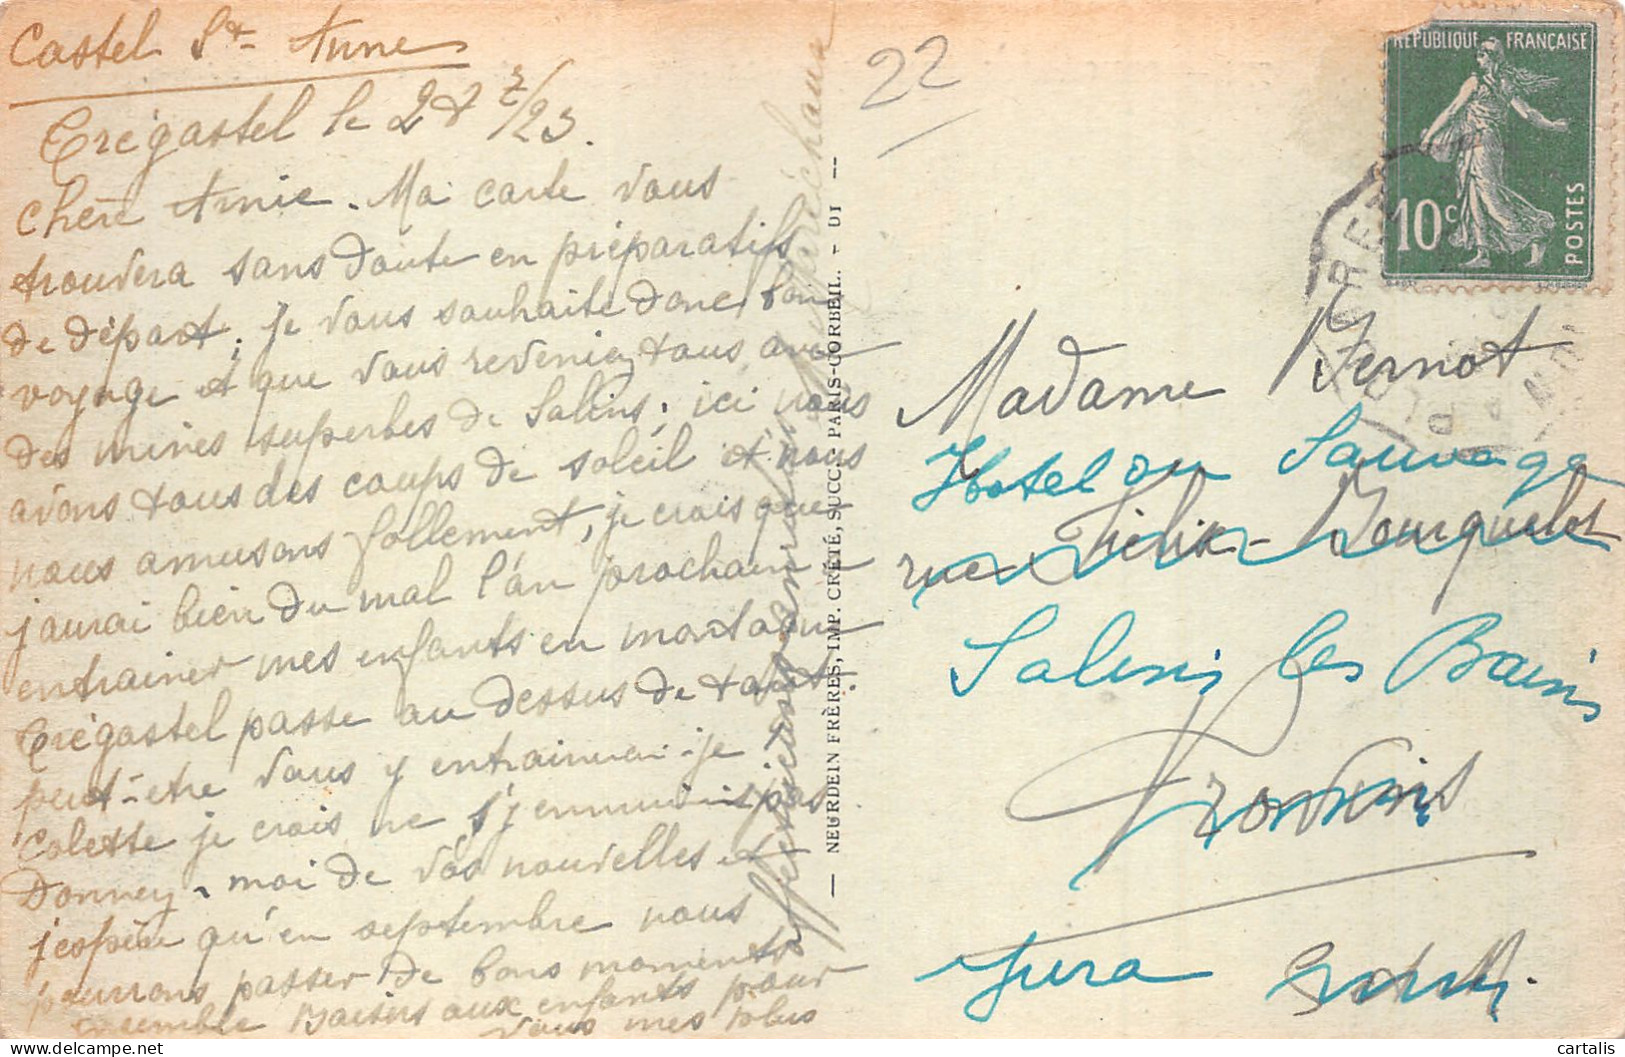 Castel Ste Anne
Trégastel le 28 7/23.
chère Amie. Ma carte vous
trouvera sans doute en préparatifs
de départ, je vous souhaite donc bon
voyage et que vous reveniez tous avec
des mines superbes de Salins; ici nous
avons tous des coups de soleil et nous
nous amusons follement, je crois que
j'aurai bien du mal l'an prochain à
entrainer mes enfants en montagne
Trégastel passe au dessus de tout.
peut-etre vous y entrainerai-je
Colette je crois ne s'y ennuierait pas
Donnez-moi de vos nouvelles et
j'espère qu'en septembre nous
pourrons passer de bons moments
ensemble Baisers aux enfants pour
vous mes plus
affectueuses
22
NEURDEIN FRÈRES, IMP. CRÉTÉ, SUCC. PARIS-CORBEIL. - UI
RÉPUBLIQUE FRANÇAISE
10c
POSTES
Madame Fernot
Hotel du Sauvage
rue Félix-Bourquelot
Salins les Bains
Provins
Jura
cartalis